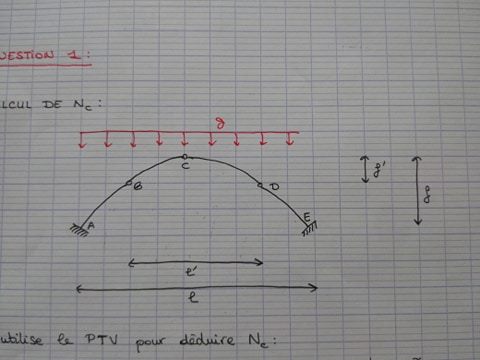 UESTION 1 :
LCUL DE Nc :
g
C
B
D
A
E
f'
f
l'
l
utilise le PTV pour déduire Nc :